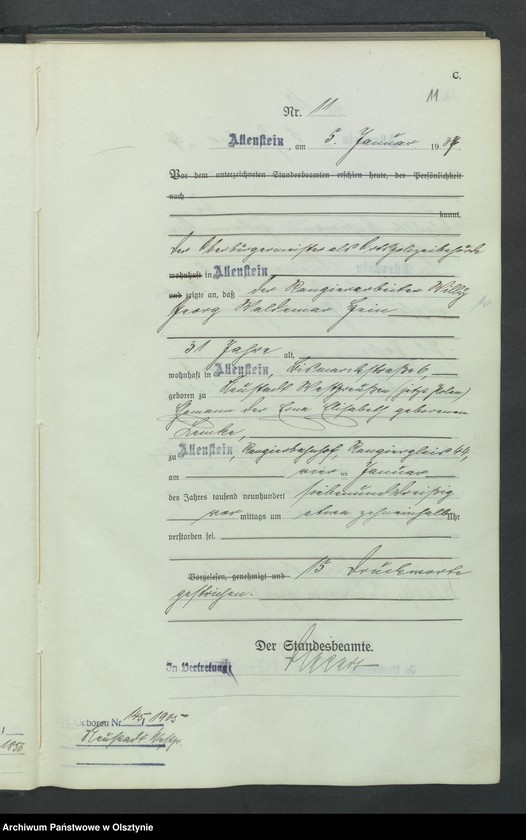 C.
11
Nr. 11
Allenstein, am 5. Januar 1937.
Vor dem unterzeichneten Standesbeamten erschien heute, der Persönlichkeit
nach
kannt,
Der Oberbürgermeister als Ortspolizeibehörde
wohnhaft in Allenstein
und zeigte an, daß der Rangierarbeiter Willy
Georg Waldemar Hein
31 Jahre alt,
wohnhaft in Allenstein, Bismarckstraße 6
geboren zu Neustadt Westpreußen (jetzt Polen)
Ehemann der Erna Elisabeth geborenen
Lemke,
zu Allenstein, Rangierbahnhof, Rangiergleis 44,
am vier ten Januar
des Jahres tausend neunhundert siebenunddreißig
vor mittags um etwa zehneinhalb Uhr
verstorben sei.
Vorgelesen, genehmigt und 15 Druckworte
gestrichen.
Der Standesbeamte.
In Vertretung
Geboren Nr. 145/1905
Neustadt Westpr.
1850
Archiwum Państwowe w Olsztynie